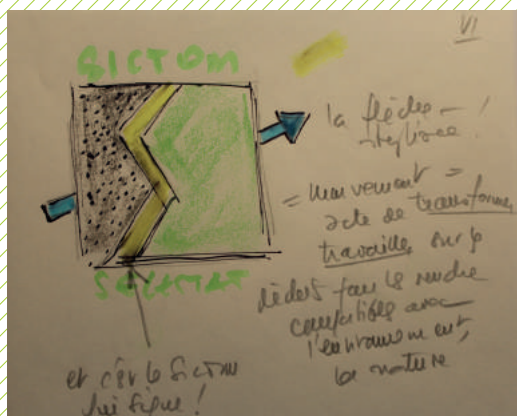 VI
SICTOM
la flèche –
stylisée !
= mouvement =
acte de transformer
travailler sur le
déchet pour le rendre
compatibles avec
l'environnement,
la nature
et c'est le Sictom
qui signe !